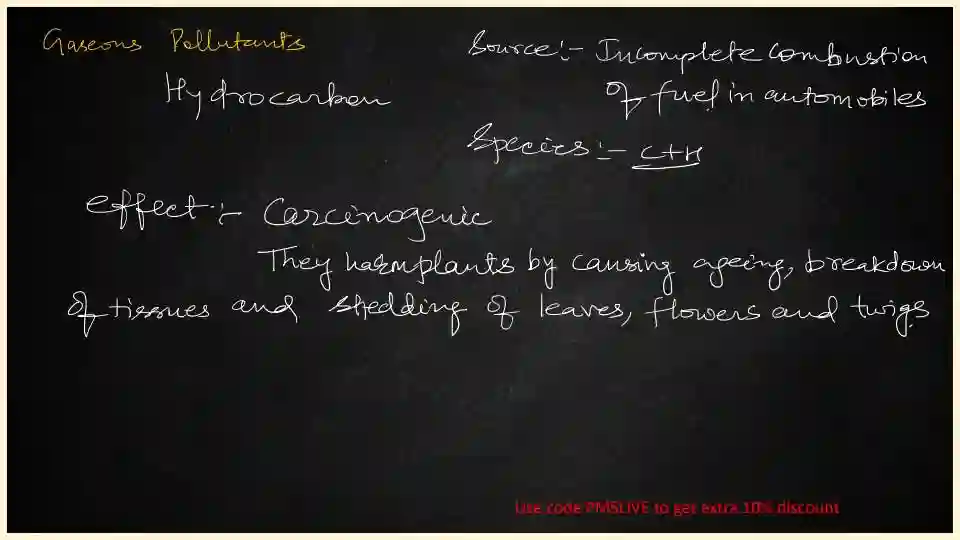 Gaseous Pollutants
Hydrocarbon
Source:- Incomplete combustion
of fuel in automobiles
Species:- C+H
effect:- Carcinogenic
They harm plants by causing ageing, breakdown
of tissues and shedding of leaves, flowers and twigs
Use code PMSLIVE to get extra 10% discount